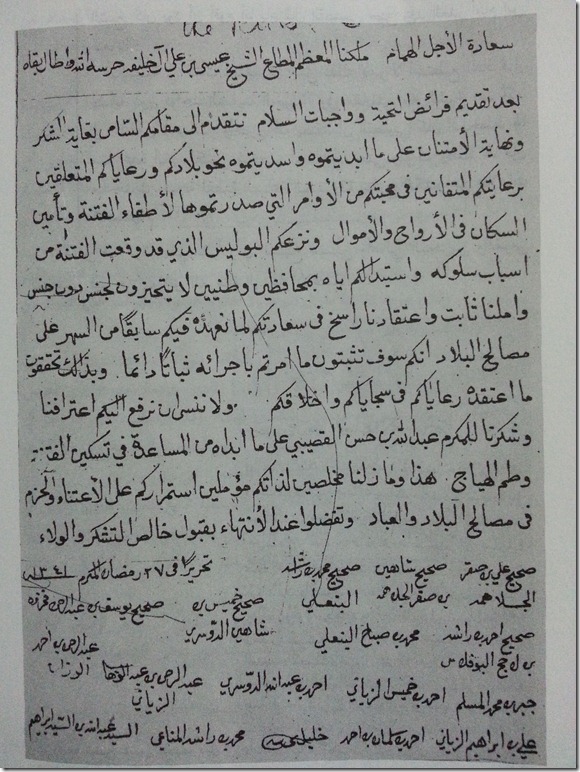 سعادة الأجل الهمام ملكنا المعظم المطاع الشيخ عيسى بن علي آل خليفه حرسه الله واطال بقاه
بعد تقديم فرائض التحية وواجبات السلام نتقدم الى مقامكم السامي بغاية الشكر
ونهاية الأمتنان على ما ابديتموه واسديتموه نحو بلادكم ورعاياكم المتعلقين
برعايتكم المتفانين في محبتكم من الأوامر التي صدرتموها لأطفاء الفتنة وتأمين
السكان في الأرواح والأموال ونزعكم البوليس الذي قد وقعت الفتنة من
اسباب سلوكه واستبدالكم اياه بمحافظين وطنيين لا يتحيزون لجنس دون جنس
واملنا ثابت واعتقادنا راسخ في سعادتكم لما نعهده فيكم سابقا من السهر على
مصالح البلاد انكم سوف تثبتون ما امرتم باجرائه ثباتا دائما وبذالك تحققون
ما اعتقده رعاياكم في سجاياكم واخلاقكم ولا ننسى ان نرفع اليكم اعترافنا
وشكرنا للمكرم عبدالله بن حسن القصيبي على ما ابداه من المساعدة في تسكين الفتنة
وطم الهياج هذا وما زلنا مخلصين لذاتكم مؤملين استمراركم على الأعتناء والحزم
في مصالح البلاد والعباد وتفضلوا عند الأنتهاء بقبول خالص التشكر والولاء
تحريرا في ٢٧ رمضان المكرم ١٣٤١
صحيح علي بن صقر صحيح شاهين صحيح محمد بن راشد
الجلاهمه بن صقر الجلاهمه البنعلي صحيح خميس بن صحيح يوسف بن عبدالرحمن فخرو
صحيح احمد بن راشد محمد بن صباح البنعلي شاهين الدوسري عبدالرحمن بن احمد
بن لاحج البوفلاسه الوزان
جبر بن محمد المسلم احمد بن خميس الزياني احمد بن عبدالله الدوسري عبدالرحمن بن عبدالوهاب الزياني
علي بن ابراهيم الزياني احمد بن سلمان بن احمد خليل محمد بن راشد المناعي السيد عبدالله بن السيد ابراهيم